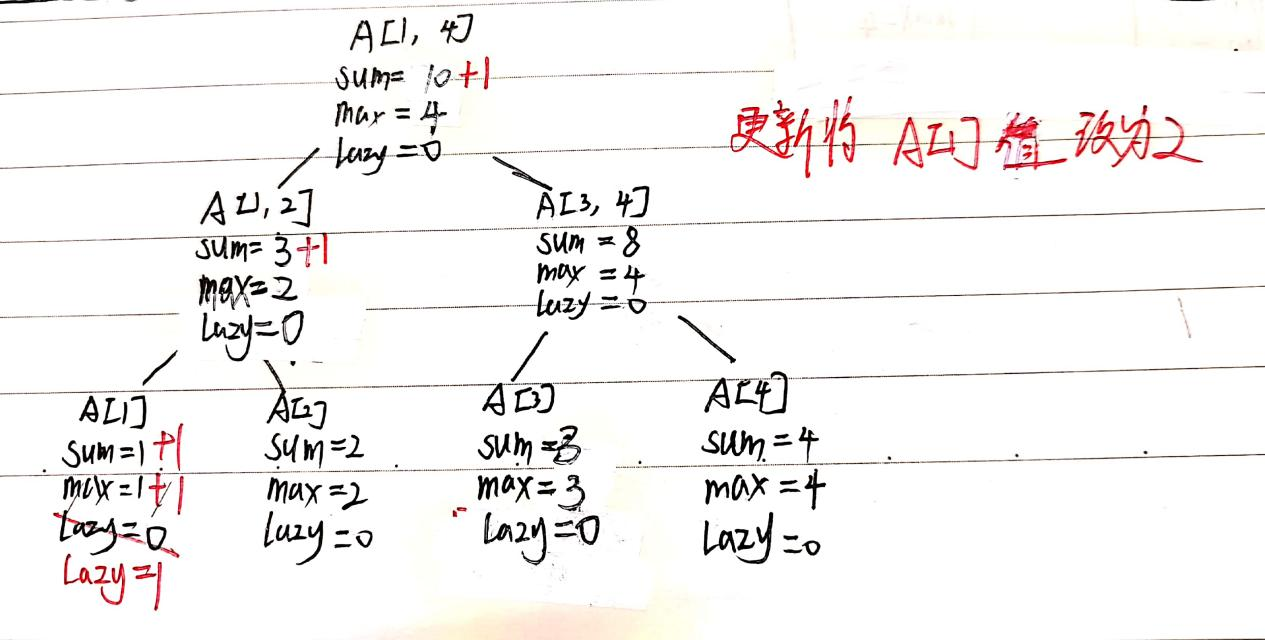 A[1, 4]
sum= 10+1
max=4
lazy=0
更新将 A[1] 值 改为2
A[1,2]
sum= 3+1
max=2
lazy=0
A[3, 4]
sum=8
max=4
lazy=0
A[1]
sum=1+1
max=1+1
lazy=0
lazy=1
A[2]
sum=2
max=2
lazy=0
A[3]
sum=3
max=3
lazy=0
A[4]
sum=4
max=4
lazy=0